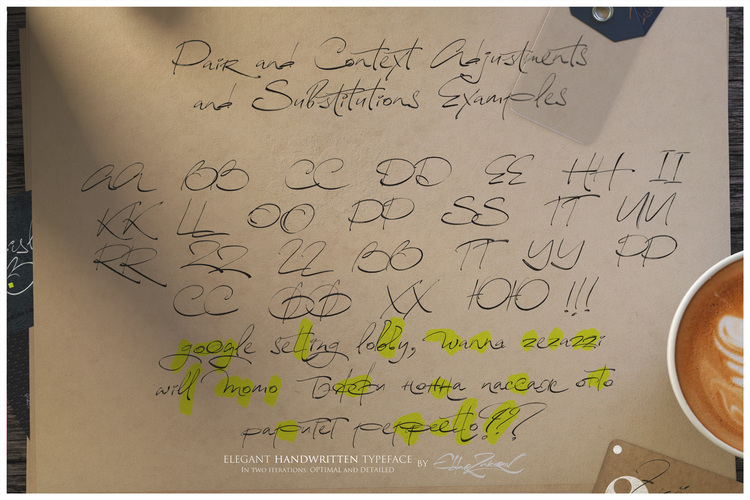 Pair and Context Adjustments
and Substitutions Examples
AA BB CC DD EE HH II
KK LL OO PP SS TT UU
RR 22 22 BB TT YY PP
CC ФФ XX ЮЮ !!!
google setting lobby, wanna zezazzi
will momo нонна пассаж ото
паритет perppetto???
ELEGANT HANDWRITTEN TYPEFACE BY
IN TWO ITERATIONS: OPTIMAL AND DETAILED